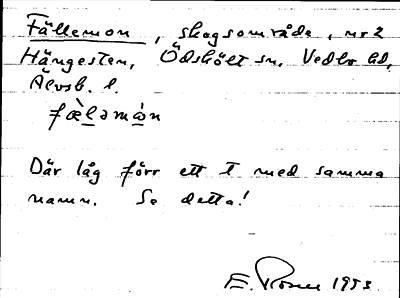 Fällemon, skogsområde, nr 2
Hängesten, Ödskölt sn, Vedbo hd,
Älvsb. l.
fæ̀lǝmàn
Där låg förr ett t med samma
namn. Se detta!
E. Rosell 1953